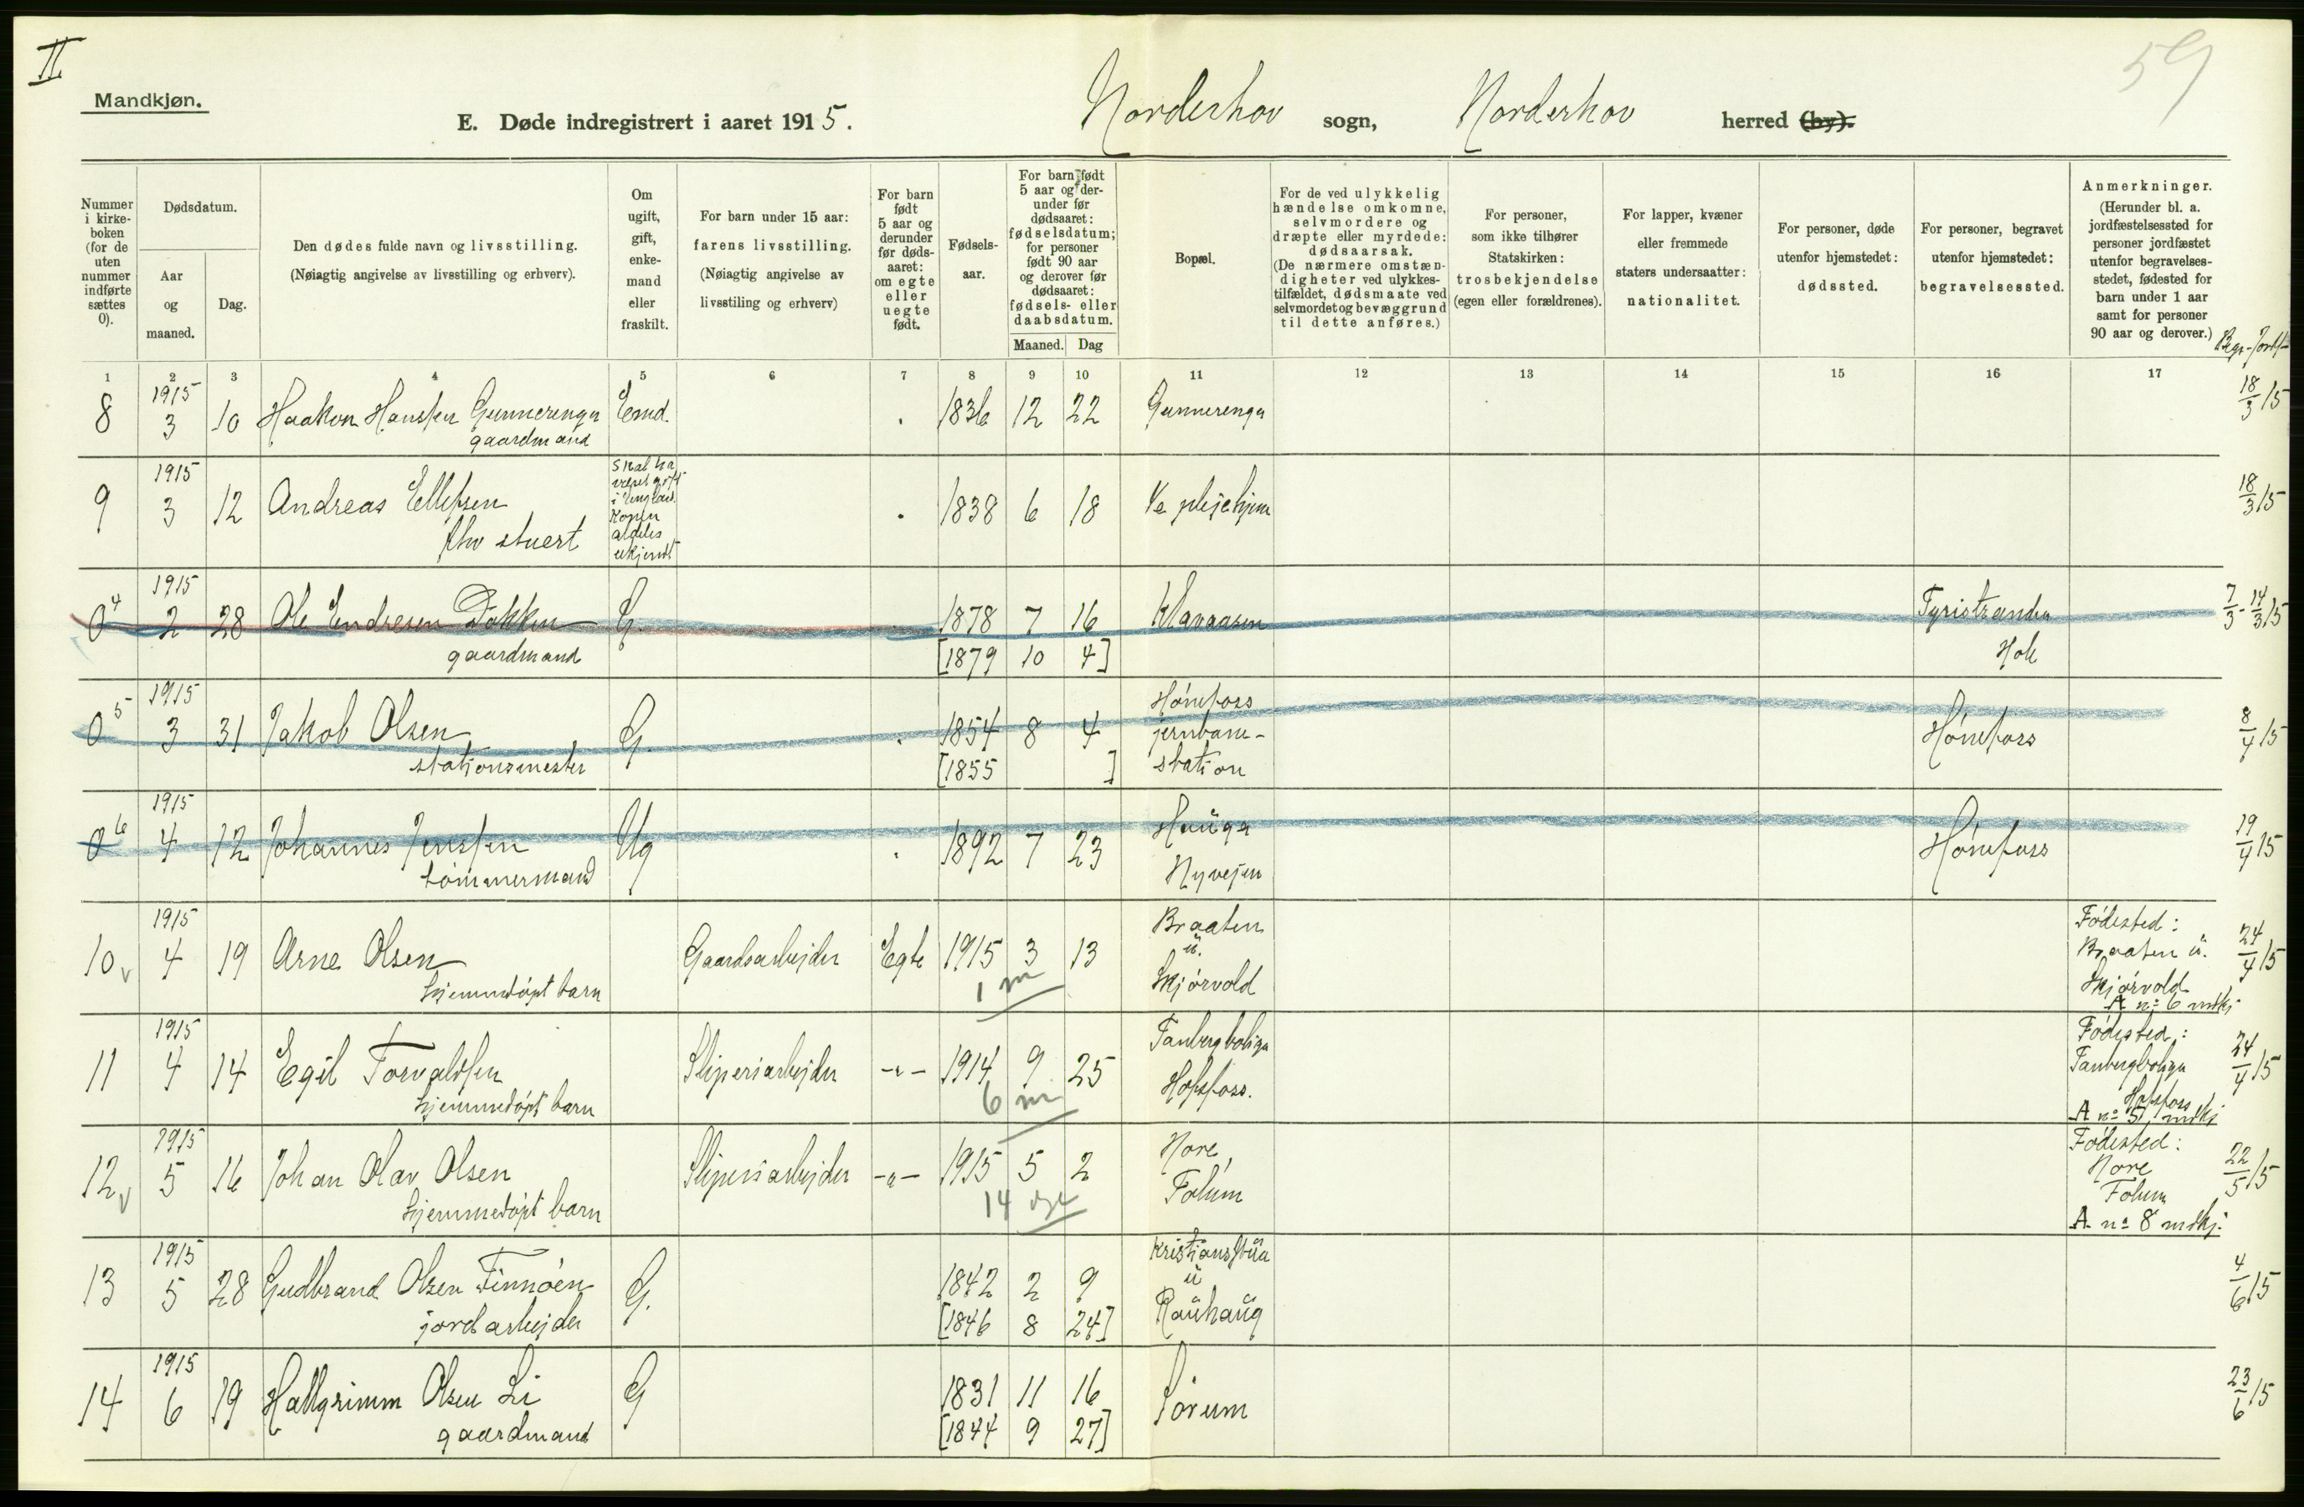 II
59
Mandkjøn.
E. Døde indregistrert i aaret 1915. Norderhov sogn, Norderhov herred (by).
Nummer i kirke-boken (for de uten nummer indførte sættes 0).
Dødsdatum.
Aar og maaned.
Dag.
Den dødes fulde navn og livsstilling.
(Nøiagtig angivelse av livsstilling og erhverv).
Om ugift, gift, enke-mand eller fraskilt.
For barn under 15 aar: farens livsstilling.
(Nøiagtig angivelse av livsstiling og erhverv)
For barn født 5 aar og derunder før døds-aaret: om egte eller uegte født.
Fødsels-aar.
For barn født 5 aar og der-under før dødsaaret: fødselsdatum; for personer født 90 aar og derover før dødsaaret: fødsels- eller daabsdatum.
Maaned. Dag
Bopæl.
For de ved ulykkelig hændelse omkomne, selvmordere og dræpte eller myrdede: dødsaarsak.
(De nærmere omstæn-digheter ved ulykkes-tilfældet, dødsmaate ved selvmordet og bevæggrund til dette anføres.)
For personer, som ikke tilhører Statskirken: trosbekjendelse (egen eller forældrenes).
For lapper, kvæner eller fremmede staters undersaatter: nationalitet.
For personer, døde utenfor hjemstedet: dødssted.
For personer, begravet utenfor hjemstedet: begravelsessted.
Anmerkninger.
(Herunder bl. a. jordfæstelsessted for personer jordfæstet utenfor begravelses-stedet, fødested for barn under 1 aar samt for personer 90 aar og derover.)
Begr.-Jordf.
1 2 3 4 5 6 7 8 9 10 11 12 13 14 15 16 17
8 1915 3 10 Haakon Hanssen Gunnerenga Emd. 1836 12 22 Gunnerenga 18/3 15
gaardmand
9 1915 3 12 Andreas Ellefsen 1838 6 18 plejehjem 18/3 15
fhv stuert
Skal ha
været gift
i England.
Konen
aldeles
ukjendt
0 4 1915 2 28 Ole Endresen Dokken G. 1878 7 16 Klavaasen Tyristranden 7/3 - 14/3 15
gaardmand [1879 10 4] Hole
0 5 1915 3 31 Jakob Olsen G. 1854 8 4 Hønefoss jernbane- Hønefoss 8/4 15
stationsmester [1855 ] station
0 6 1915 4 12 Johannes Jenssen Ug 1892 7 23 Hauga Hønefoss 19/4 15
tømmermand Nyvejen
10 v 1915 4 19 Arne Olsen Gaardsarbejder Egte 1915 3 13 Braaten u. Skjørvold Fødested: Braaten u. Skjørvold 24/4 15
hjemmedøpt barn 1 m A no 6 mdkj
11 1915 4 14 Egil Torvaldsen Sliperiarbejder -"- 1914 9 25 Tanbergboliga Hofsfoss. Fødested: Tanbergboliga Hofsfoss 24/4 15
hjemmedøpt barn 6 m A no 5 mdkj
12 v 1915 5 16 Johan Olav Olsen Sliperiarbejder -"- 1915 5 2 Nore, Follum Fødested: Nore Follum 22/5 15
hjemmedøpt barn 14 dge A no 8 mdkj.
13 1915 5 28 Gudbrand Olsen Finnøen G. 1842 2 9 Kristiansstua u Rauhaug 4/6 15
jordarbejder [1846 8 24]
14 1915 6 19 Hallgrimm Olsen Li G 1831 11 16 Sørum 23/6 15
gaardmand [1844 9 27]